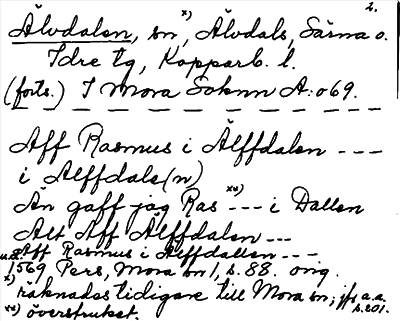 2.
Älvdalen, sn x), Älvdals, Särna o.
Idre tg, Kopparb. l.
(forts.) I Mora Soknn A:o69.
Aff Rasmus i Älffdalen ---
i Alffdale(n)
Än gaff jag Ras xx)--- i Dallen
Alt Aff Älffdalen ---
Aff Rasmus i Älffdallen ---
u.å. 1569 Pers, Mora sn 1, s. 88. orig.
x) räknades tidigare till Mora sn; jfr a.a. s. 201.
xx) överstruket.